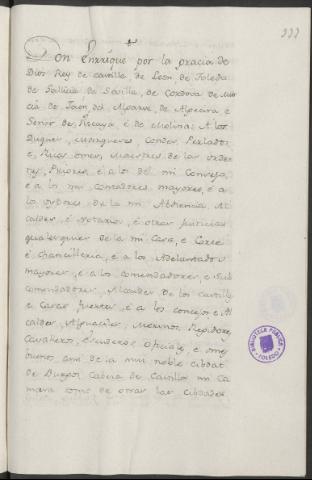 333
Don Enrrique por la gracia de
Dios Rey de castilla, de Leon, de Toledo
de Gallicia de Sevilla, de Cordova de Mur
cia de Jaen, del Algarve, de Algecira e
Señor de Vizcaya, é de Molina: A los
Duques, Marqueses Condes, Perlados
e, Ricos omes, Maestres de las orde
nes, Priores, é a los del mi Consejo,
e a los mis contadores, mayores, é a
los oydores de la mi Abdiencia Al
caldes, é Notarios, é otras justicias
qualesquier de la mi Casa, e Corte
é chancilleria, e a los Adelantados
mayores, e a los comendadores, e sub
comendadores, Alcaydes de los castillos
e casas fuertes, é a los concejos e Al
caldes, Alguaciles, Merinos, Regidores,
Cavalleros, Escuderos Oficiales, e omes
buenos, ansi de la mui noble cibdat
de Burgos, Cabeza de Castilla mi Ca
mara como de otras las cibdades
BIBLIOTECA PUBLICA
TOLEDO